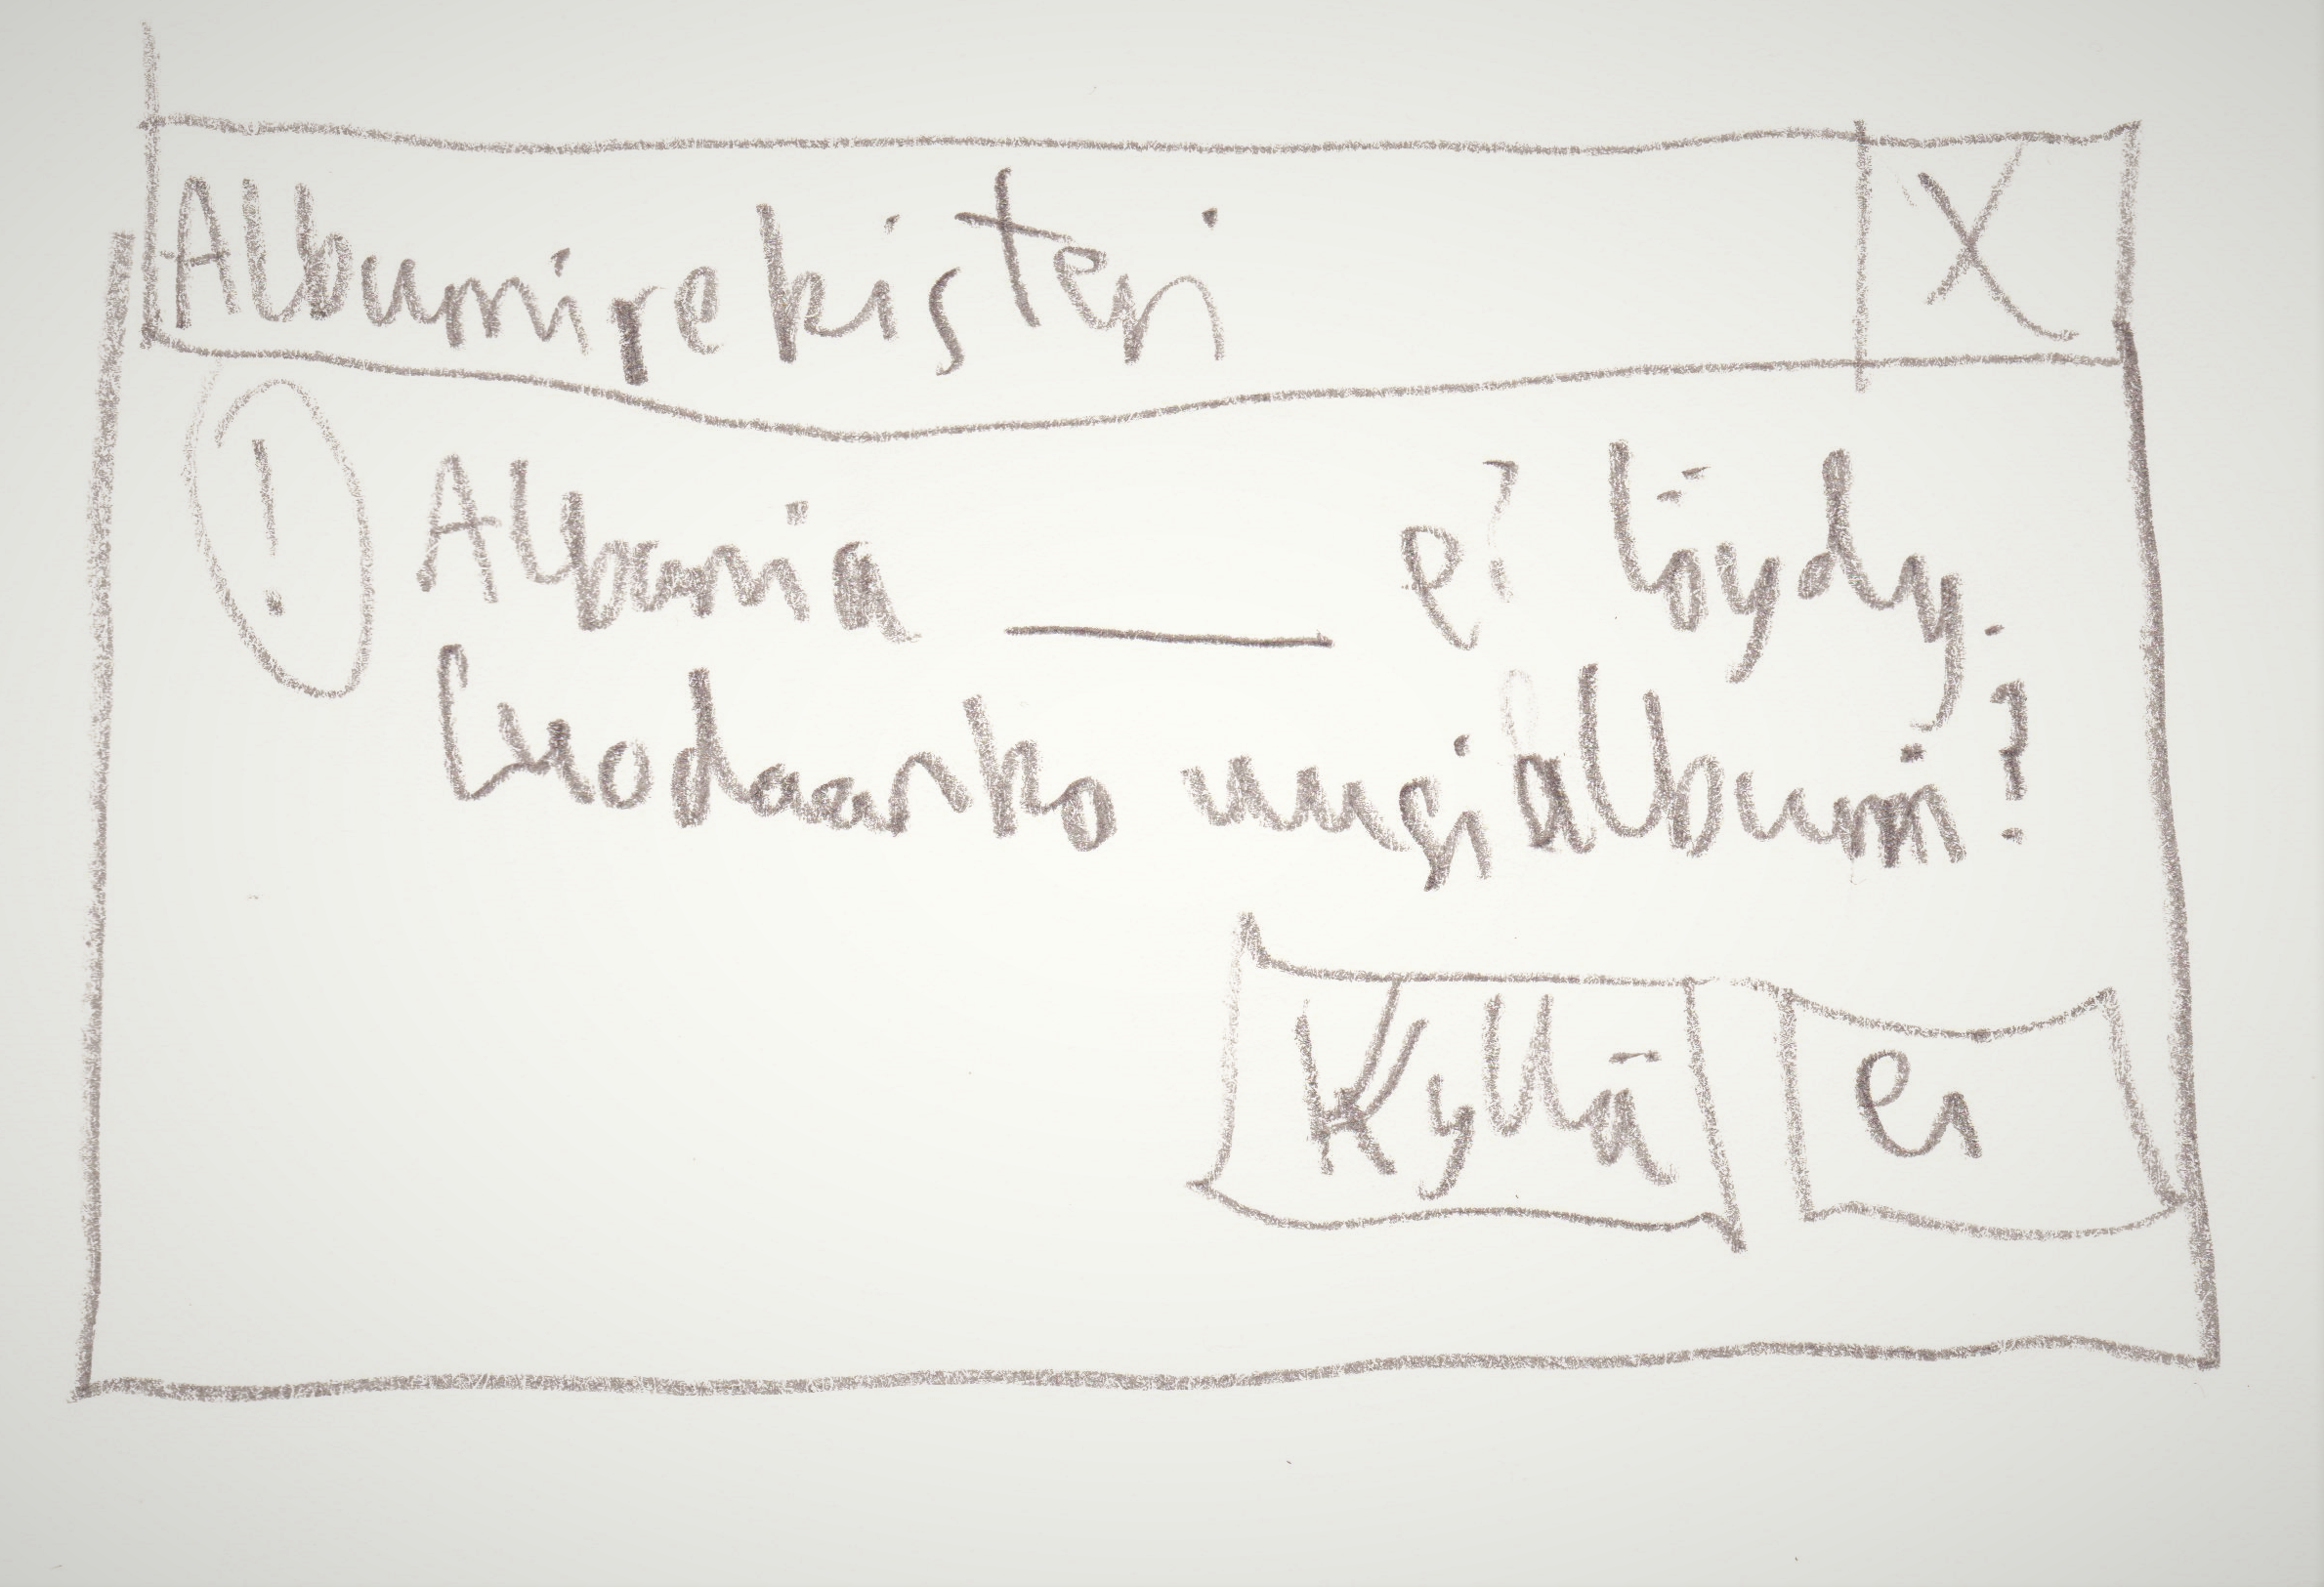 Albumirekisteri X
! Albumia ____ ei löydy.
Luodaanko uusi albumi?
Kyllä ei